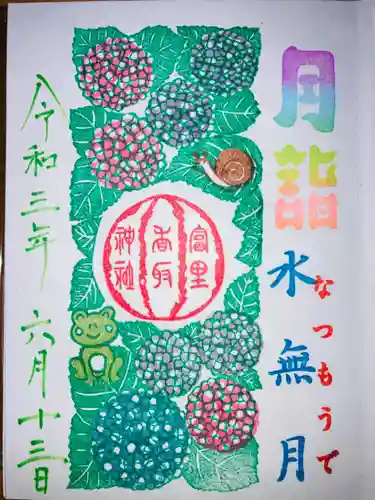 月詣
水無月
なつもうで
富里
香取
神社
令和三年 六月十三日